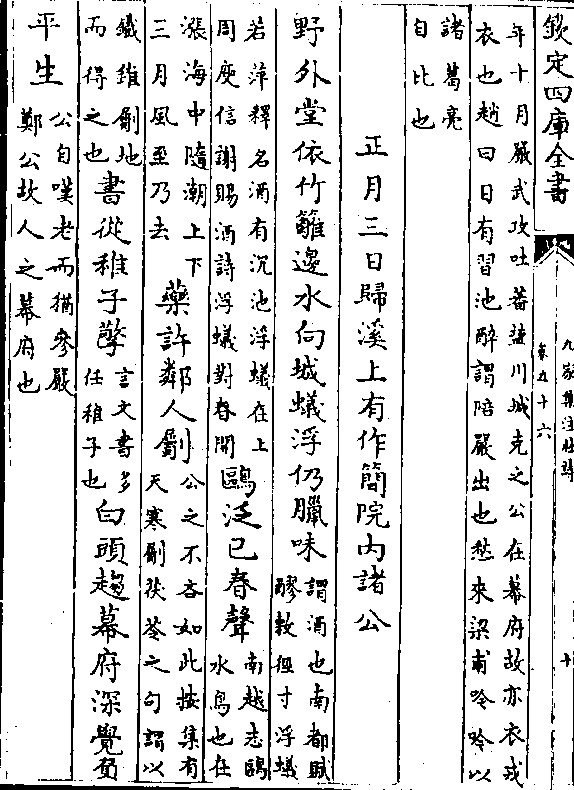 欽定四庫全書
九家集注杜詩
卷二十六
十
年十月嚴武攻吐蕃鹽川城克之公在幕府故亦衣戎
衣也趙曰日有習池醉謂陪嚴出也愁來梁甫吟吟以
諸葛亮
自比也
正月三日歸溪上有作簡院内諸公
野外堂依竹籬邊水向城蟻浮仍臘味
謂酒也南都賦
醪敷徑寸浮蟻
若萍釋名酒有沉池浮蟻在上
周庾信謝賜酒詩浮蟻對春開
鷗泛已春聲
南越志鷗
水鳥也在
漲海中隨潮上下
三月風至乃去
藥許鄰人劚
公之不吝如此按集有
天寒劚茯苓之句謂以
鐵錐劚地
而得之也
書從稚子擎
言文書多
任稚子也
白頭趨幕府深覺負
平生
公自嘆老而猶參嚴
鄭公故人之幕府也